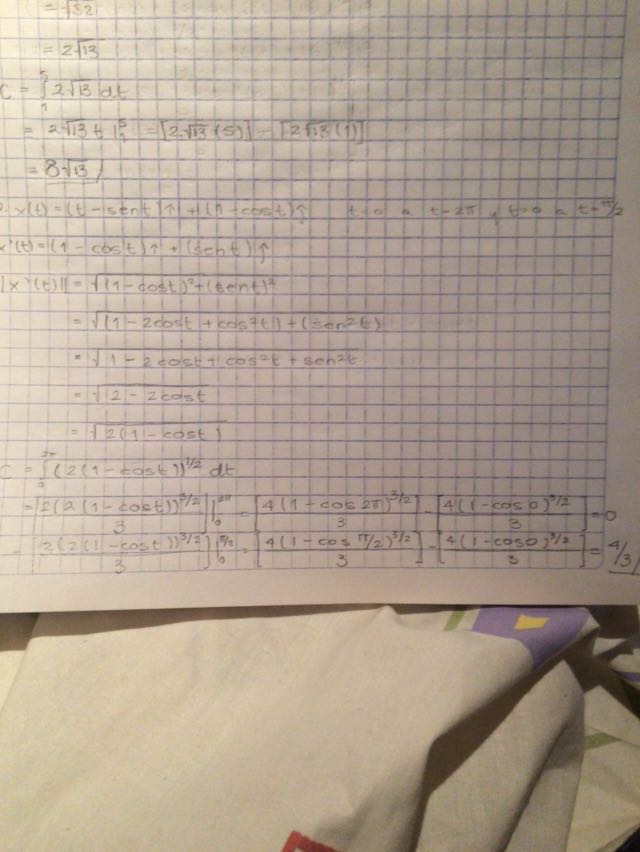 = √52
= 2√13
C = ∫₁⁵ 2√13 dt
= 2√13 t |₁⁵ = [2√13 (5)] - [2√13 (1)]
= 8√13
2. x(t) = (t - sent)î + (1 - cost)ĵ t=0 a t=2π y t=0 a t=π/2
x'(t) = (1 - cost)î + (sent)ĵ
||x'(t)|| = √(1-cost)² + (sent)²
= √(1 - 2cost + cos²t) + (sen²t)
= √1 - 2cost + cos²t + sen²t
= √2 - 2cost
= √2(1 - cost)
C = ∫₀²π (2(1-cost))^1/2 dt
= [2(2(1-cost))^3/2 / 3] |₀²π = [4(1-cos2π)^3/2 / 3] - [4(1-cos0)^3/2 / 3] = 0
= [2(2(1-cost))^3/2 / 3] |₀π/2 = [4(1-cosπ/2)^3/2 / 3] - [4(1-cos0)^3/2 / 3] = 4/3